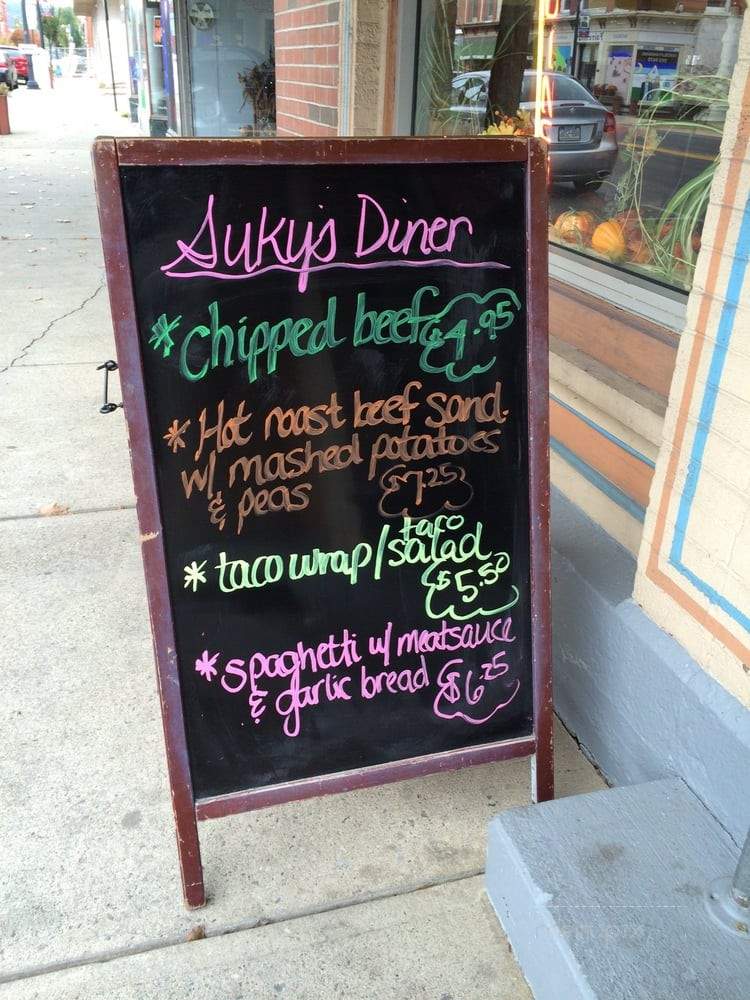 Suky's Diner
* Chipped beef $4.95
* Hot roast beef sand.
w/ mashed potatoes
& peas $7.25
taco
* taco wrap/salad
$5.50
* spaghetti w/ meatsauce
& garlic bread $6.25